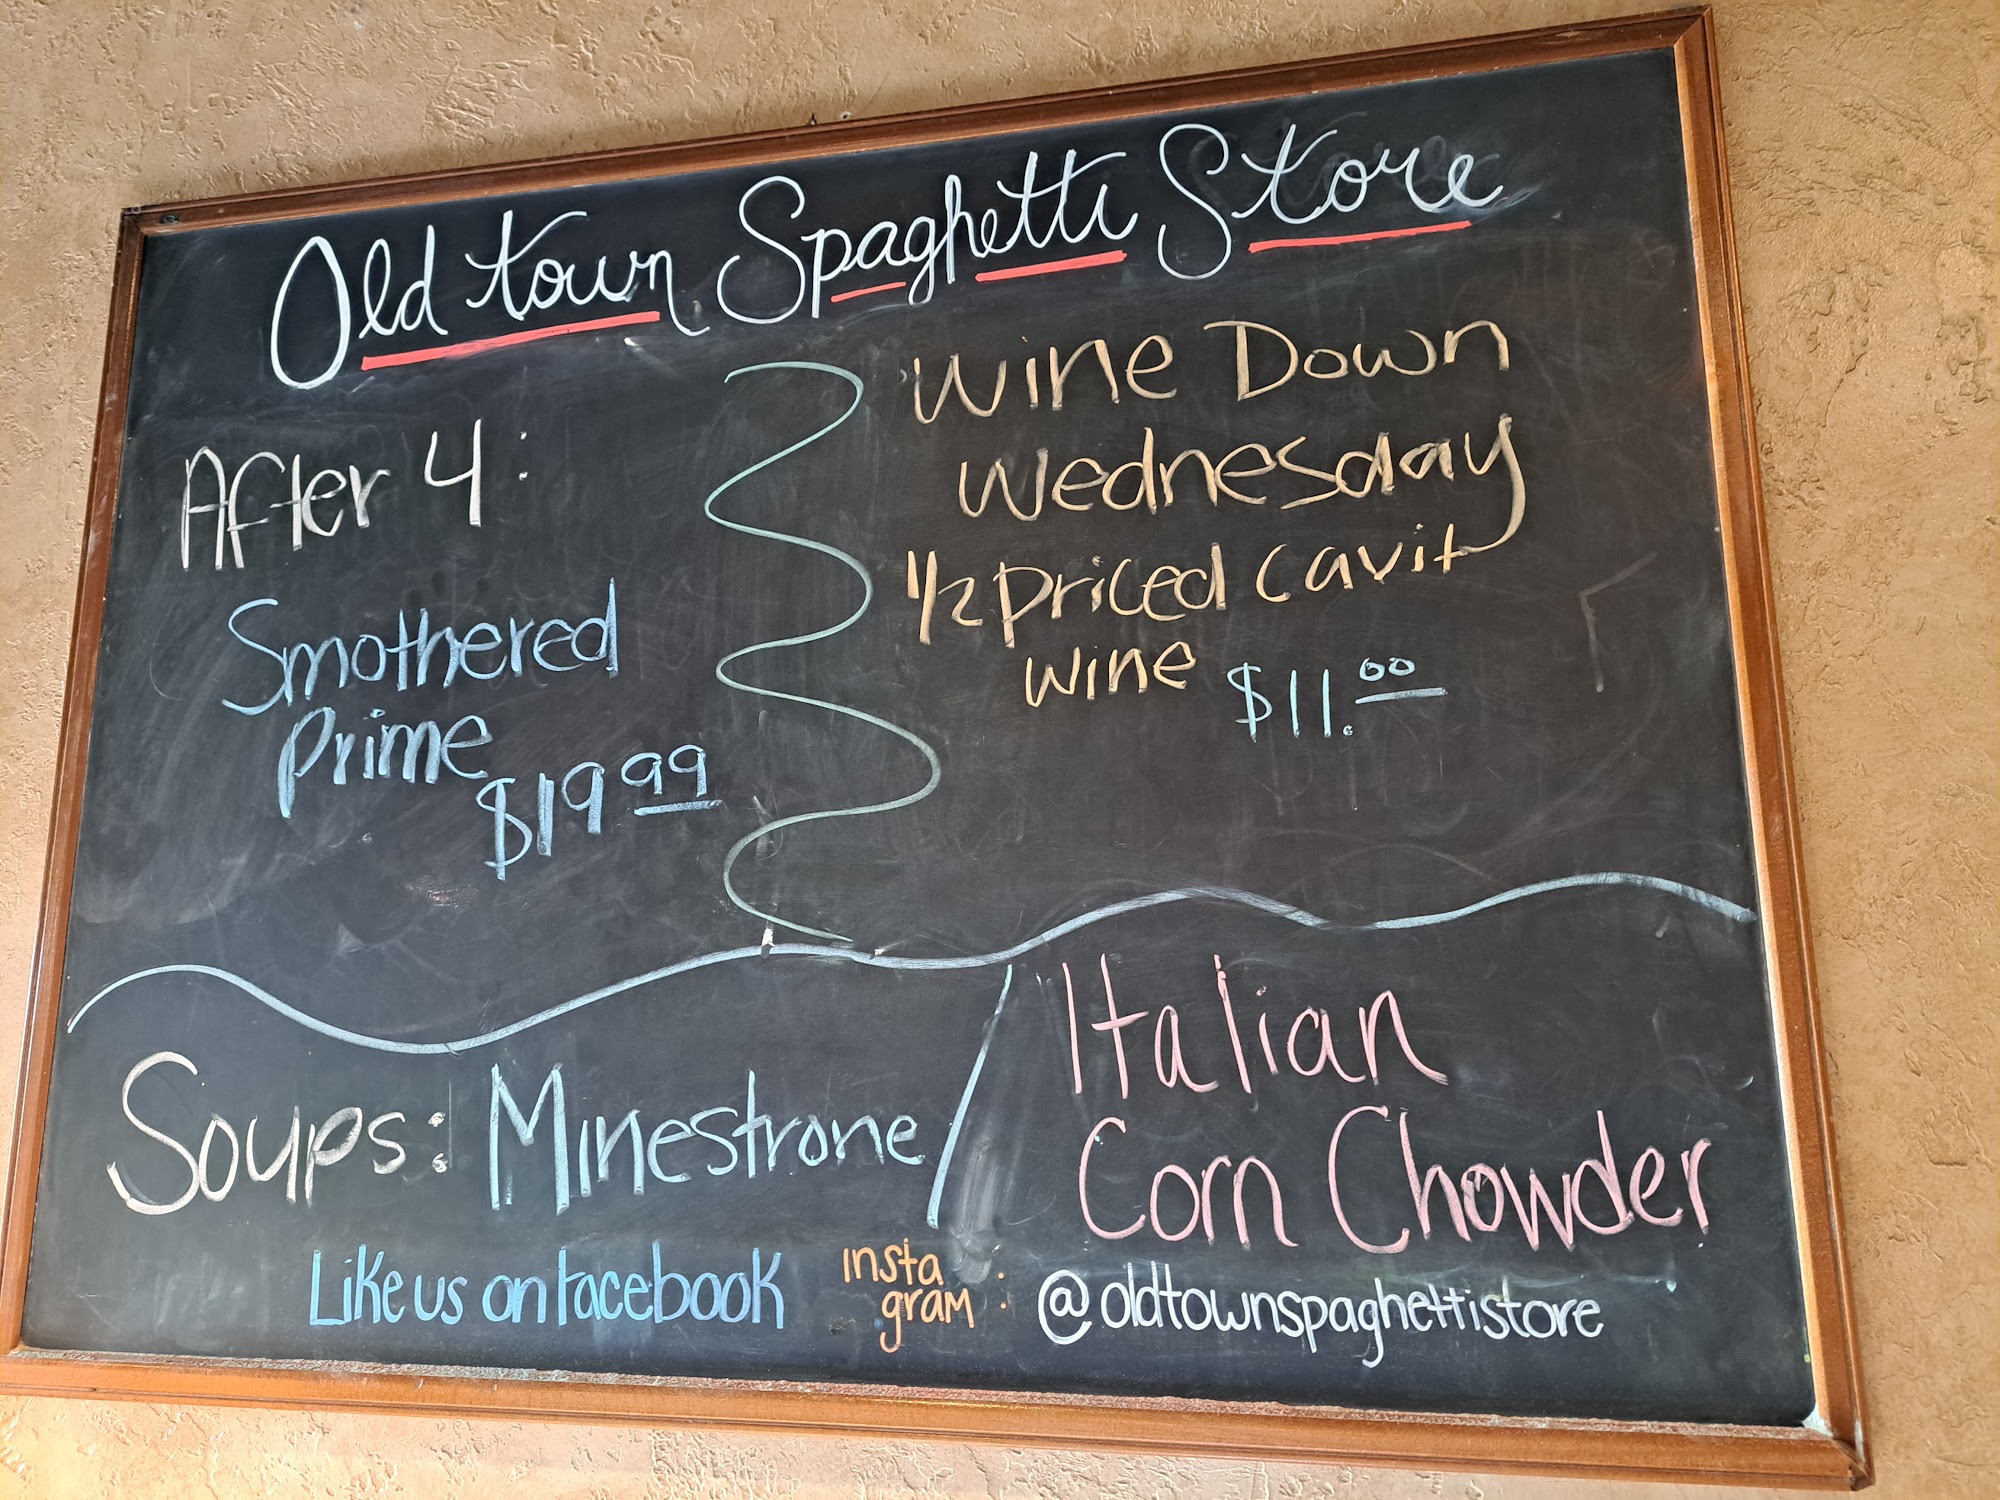 Old town Spaghetti Store
After 4:
Smothered
Prime
$19 99
Wine Down
Wednesday
1/2 Priced Cavit
Wine $11.00
Soups: Minestrone /
Italian
Corn Chowder
Like us on facebook
insta
gram :
@oldtownspaghettistore